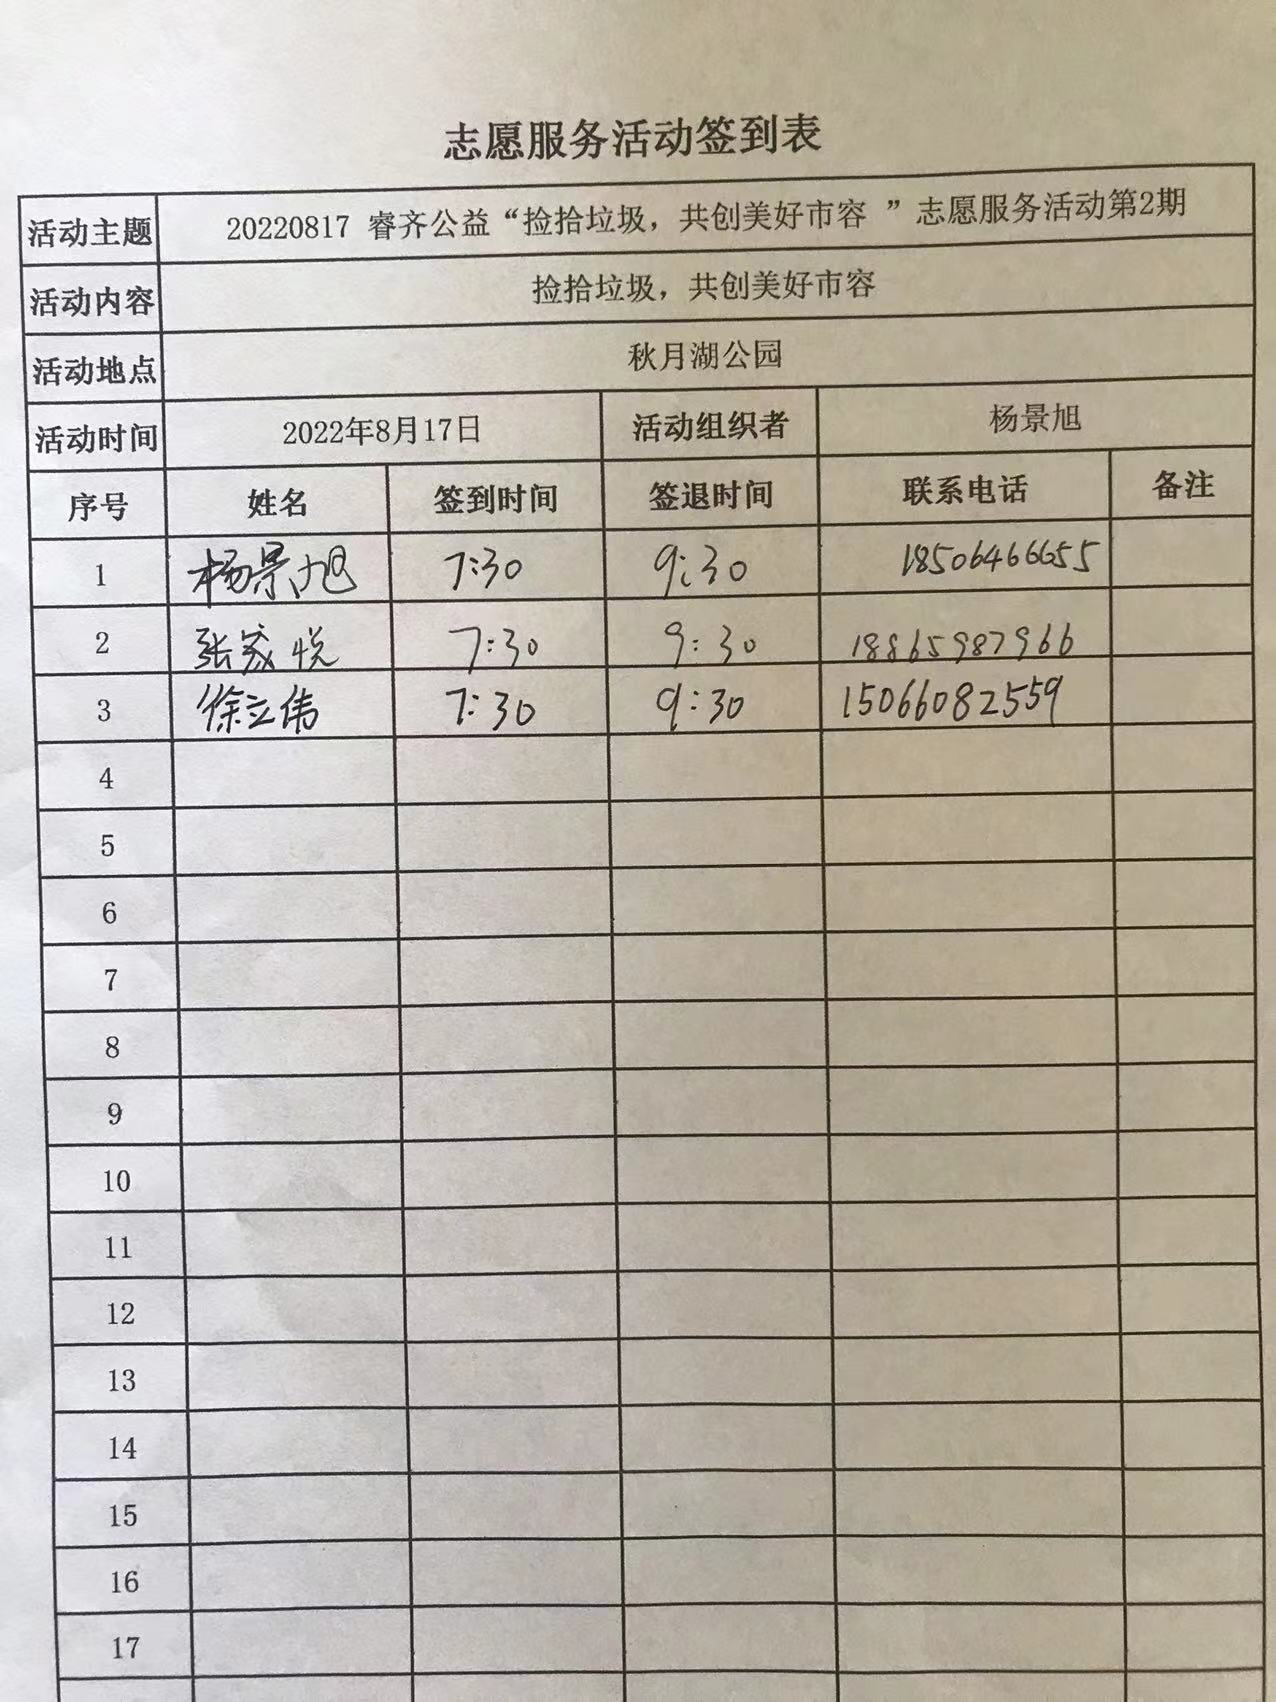 志愿服务活动签到表
活动主题 20220817 睿齐公益“捡拾垃圾，共创美好市容 ”志愿服务活动第2期
活动内容 捡拾垃圾，共创美好市容
活动地点 秋月湖公园
活动时间 2022年8月17日 活动组织者 杨景旭
序号 姓名 签到时间 签退时间 联系电话 备注
1 杨景旭 7:30 9:30 18506466655
2 张家悦 7:30 9:30 18865987966
3 徐立伟 7:30 9:30 15066082559
4
5
6
7
8
9
10
11
12
13
14
15
16
17